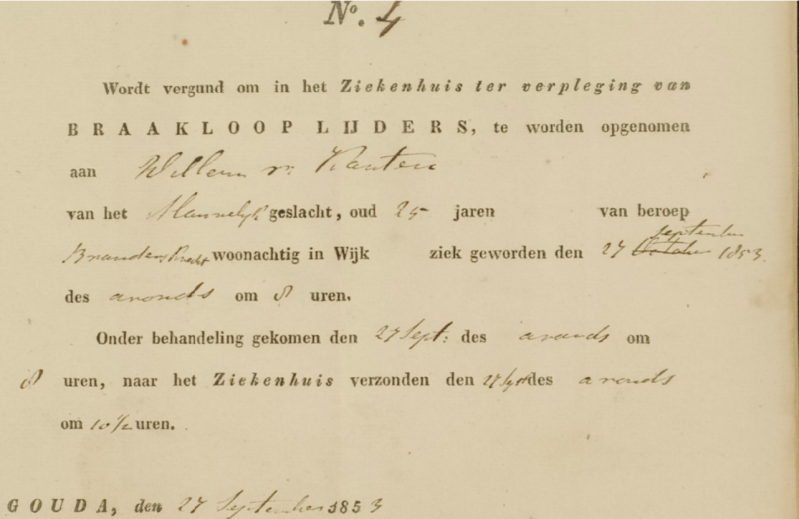 No. 4
Wordt vergund om in het Ziekenhuis ter verpleging van
BRAAKLOOPLIJDERS, te worden opgenomen
aan Willem v.
van het Mannelijk geslacht, oud 25 jaren van beroep
september
Brandersknecht woonachtig in Wijk ziek geworden den 27 October 1853.
des avonds om 8 uren.
Onder behandeling gekomen den 27 Sept: des avonds om
8 uren, naar het Ziekenhuis verzonden den 27 Sept des avonds
om 10 1/2 uren.
GOUDA, den 27 September 1853